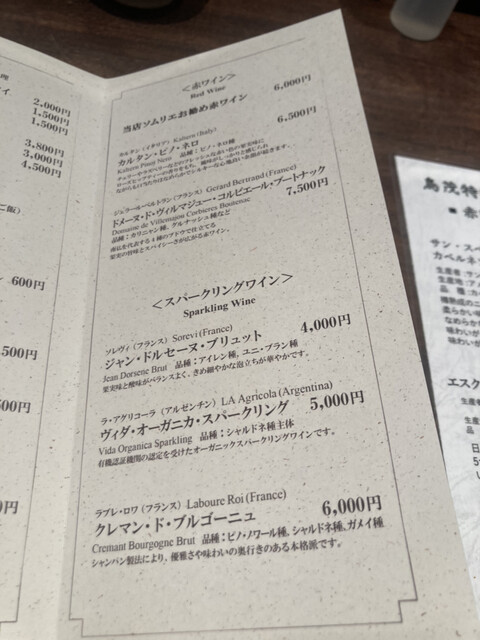 2,000円
1,500円
1,500円
3,800円
3,000円
4,500円
600円
500円
500円
<赤ワイン>
Red Wine
当店ソムリエお勧め赤ワイン 6,000円
カルタン(イタリア) Kaltern(Italy)
カルタン・ピノ・ネロ 6,500円
Kaltern Pinot Nero 品種:ピノ・ネロ種
ジェラールベルトラン(フランス) Gerard Bertrand(France)
ドメーヌ・ド・ヴィルマジュー・コルビエール・ブートナック
Domaine de Villemajou Corbieres Boutenac 7,500円
品種:カリニャン種、グルナッシュ種など
南仏を代表する4種のブドウで仕立てる
果実の旨味とスパイシーさが広がる赤ワイン。
<スパークリングワイン>
Sparkling Wine
ソレヴィ(フランス) Sorevi(France)
ジャン・ドルセーヌ・ブリュット 4,000円
Jean Dorsene Brut 品種:アイレン種,ユニ・ブラン種
果実味と酸味がバランスよく、きめ細やかな泡立ちが華やかです。
ラ・アグリコーラ(アルゼンチン) LA Agricola(Argentina)
ヴィダ・オーガニカ・スパークリング 5,000円
Vida Organica Sparkling 品種:シャルドネ種主体
有機認証機関の認定を受けたオーガニックスパークリングワインです。
ラブレ・ロワ(フランス) Laboure Roi(France)
クレマン・ド・ブルゴーニュ 6,000円
Cremant Bourgogne Brut 品種:ピノ・ノワール種、シャルドネ種、ガメイ種
シャンパン製法により、優雅さや味わいの奥行きのある本格派です。
鳥茂特
■ 赤
サン・スペ
カベルネ
生産者:サン
生産地:ア
品 種:カ
種熟成の
柔らかい味
なめらか
味わいが
味わいが
エスク
生産者
生産
品